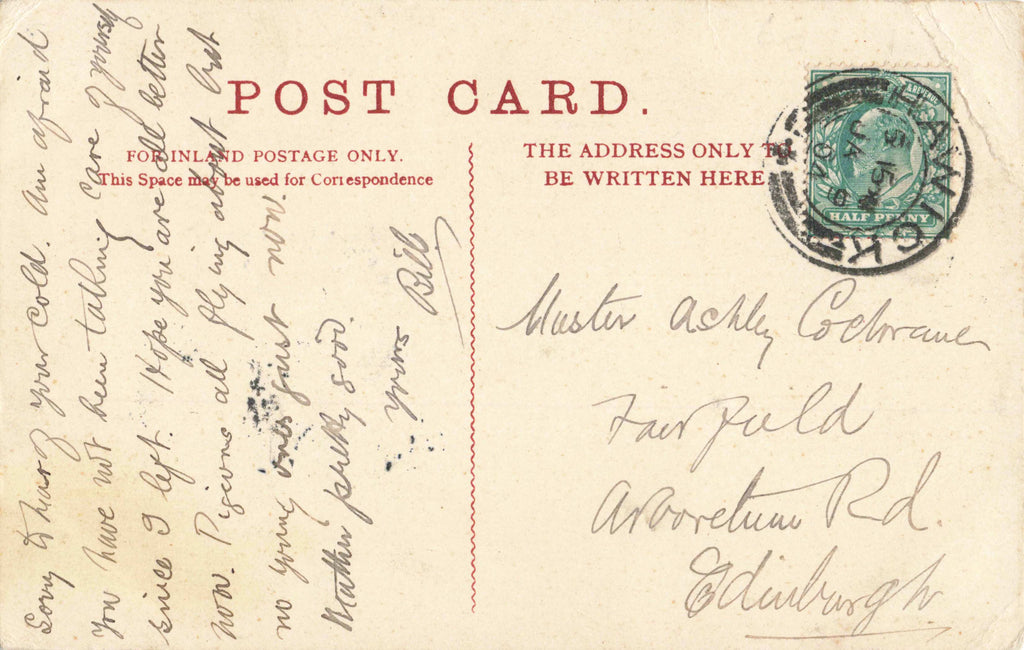 POST CARD.
FOR INLAND POSTAGE ONLY.
This Space may be used for Correspondence
THE ADDRESS ONLY TO
BE WRITTEN HERE
& REVENUE
HALF PENNY
HAWICK
5 15
JA 9
04
Sorry to hear of your cold. Am afraid
you have not been taking care of yourself
since I left. Hope you are all better
now. Pigeons all flying about but
no young ones just now.
Weather pretty good.
Yours
Bill
Master Ashley Cochrane
Fairfield
Arboretum Rd.
Edinburgh